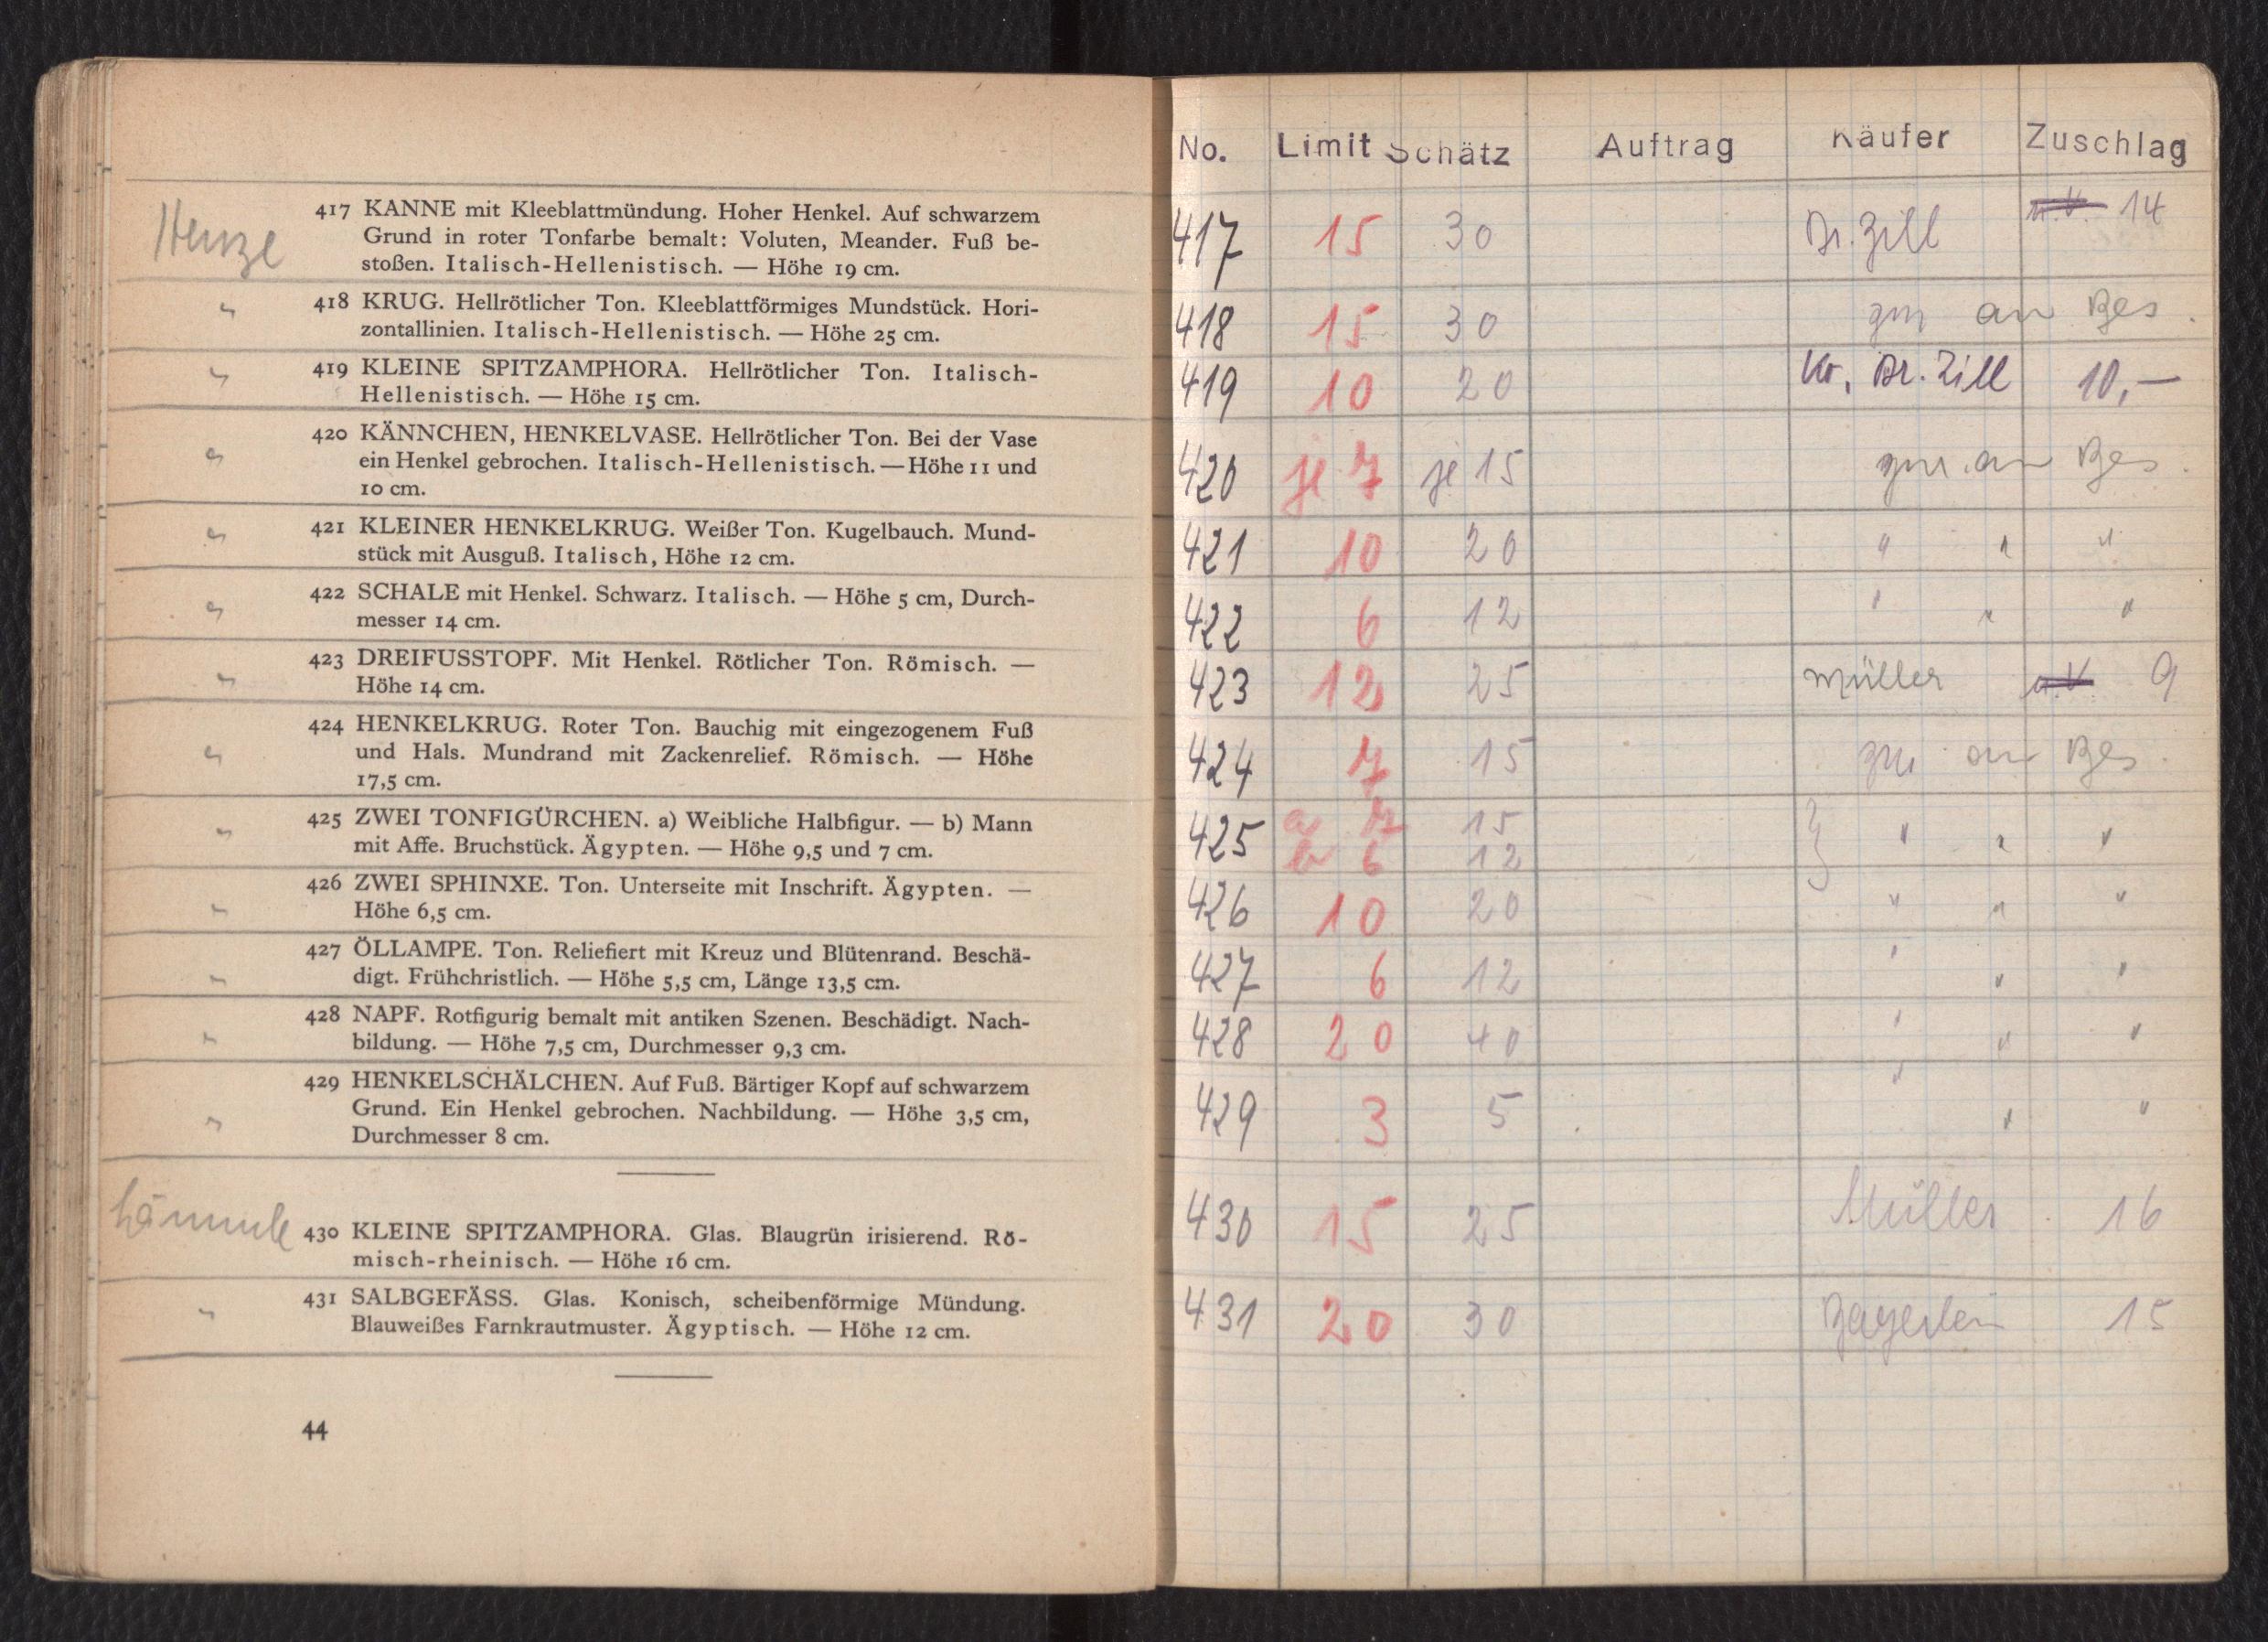 Henze
417 KANNE mit Kleeblattmündung. Hoher Henkel. Auf schwarzem
Grund in roter Tonfarbe bemalt: Voluten, Meander. Fuß be-
stoßen. Italisch-Hellenistisch. — Höhe 19 cm.
" 418 KRUG. Hellrötlicher Ton. Kleeblattförmiges Mundstück. Hori-
zontallinien. Italisch-Hellenistisch. — Höhe 25 cm.
" 419 KLEINE SPITZAMPHORA. Hellrötlicher Ton. Italisch-
Hellenistisch. — Höhe 15 cm.
" 420 KÄNNCHEN, HENKELVASE. Hellrötlicher Ton. Bei der Vase
ein Henkel gebrochen. Italisch-Hellenistisch. — Höhe 11 und
10 cm.
" 421 KLEINER HENKELKRUG. Weißer Ton. Kugelbauch. Mund-
stück mit Ausguß. Italisch, Höhe 12 cm.
" 422 SCHALE mit Henkel. Schwarz. Italisch. — Höhe 5 cm, Durch-
messer 14 cm.
" 423 DREIFUSSTOPF. Mit Henkel. Rötlicher Ton. Römisch. —
Höhe 14 cm.
" 424 HENKELKRUG. Roter Ton. Bauchig mit eingezogenem Fuß
und Hals. Mundrand mit Zackenrelief. Römisch. — Höhe
17,5 cm.
" 425 ZWEI TONFIGÜRCHEN. a) Weibliche Halbfigur. — b) Mann
mit Affe. Bruchstück. Ägypten. — Höhe 9,5 und 7 cm.
" 426 ZWEI SPHINXE. Ton. Unterseite mit Inschrift. Ägypten. —
Höhe 6,5 cm.
" 427 ÖLLAMPE. Ton. Reliefiert mit Kreuz und Blütenrand. Beschä-
digt. Frühchristlich. — Höhe 5,5 cm, Länge 13,5 cm.
" 428 NAPF. Rotfigurig bemalt mit antiken Szenen. Beschädigt. Nach-
bildung. — Höhe 7,5 cm, Durchmesser 9,3 cm.
" 429 HENKELSCHÄLCHEN. Auf Fuß. Bärtiger Kopf auf schwarzem
Grund. Ein Henkel gebrochen. Nachbildung. — Höhe 3,5 cm,
Durchmesser 8 cm.
430 KLEINE SPITZAMPHORA. Glas. Blaugrün irisierend. Rö-
misch-rheinisch. — Höhe 16 cm.
" 431 SALBGEFÄSS. Glas. Konisch, scheibenförmige Mündung.
Blauweißes Farnkrautmuster. Ägyptisch. — Höhe 12 cm.
44
No. Limit Schätz Auftrag Käufer Zuschlag
417 15 30 Dr. Zill 14
418 15 30 an Bes.
419 10 20 Dr. Zill 10,—
420 je 7 je 15 an Bes.
421 10 20 " " "
422 6 12 " " "
423 12 25 Müller 9
424 7 15 an Bes.
425 a 7 15 " " "
b 6 12
426 10 20 " " "
427 6 12 " " "
428 20 40 " " "
429 3 5 " " "
430 15 25 Müller 16
431 20 30 15